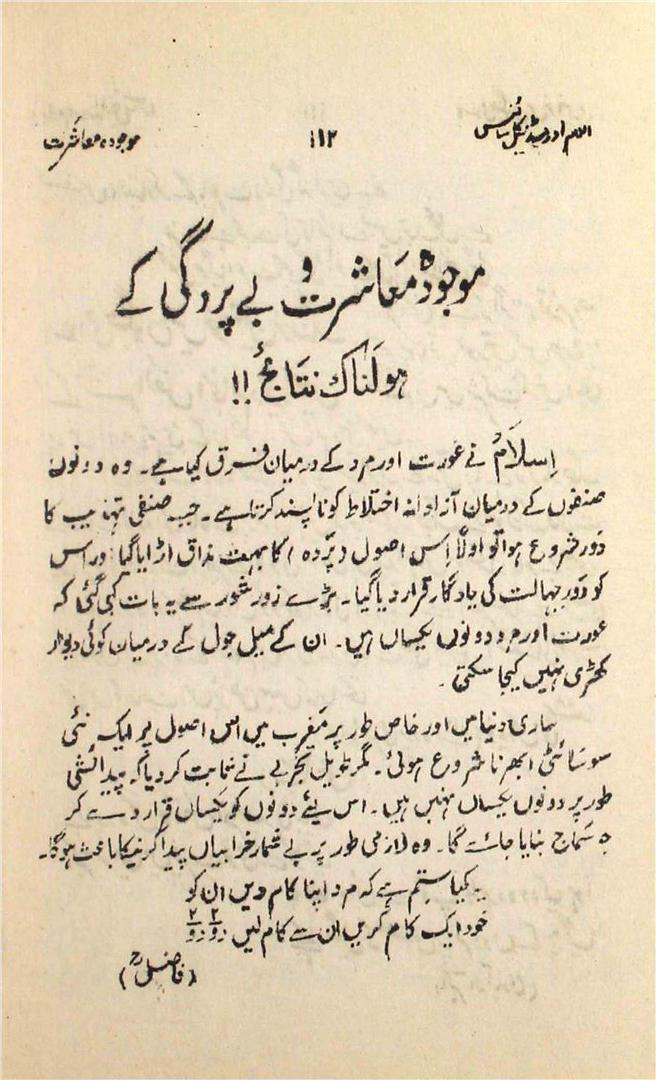 اسلام اور میڈیکل سائنس ۱۱۲ موجودہ معاشرت
موجودہ معاشرت و بے پردگی کے
ہولناک نتائج !!
اِسلامُ نے عورت اور مرد کے درمیان فرق کیا ہے۔ وہ دونوں
صنفوں کے درمیان آزادانہ اختلاط کو ناپسند کرتا ہے۔ جب صنفی تہذیب کا
دَور شروع ہوا تو اولاً اِس اصول (پردہ) کا بہت مذاق اڑایا گیا اور اس
کو دَور جہالت کی یادگار قرار دیا گیا۔ بڑے زور شور سے یہ بات کہی گئی کہ
عورت اور مرد دونوں یکساں ہیں۔ ان کے میل جول کے درمیان کوئی دیوار
کھڑی نہیں کیجا سکتی۔
ساری دنیا میں اور خاص طور پر مغرب میں اس اصول پر ایک نئی
سوسائٹی ابھرنا شروع ہوئی۔ مگر طویل تجربے نے ثابت کر دیا کہ پیدائشی
طور پر دونوں یکساں نہیں ہیں۔ اس لیئے دونوں کو یکساں قرار دے کر
جو سماج بنایا جائے گا۔ وہ لازمی طور پر بے شمار خرابیاں پیدا کرنیکا باعث ہوگا۔
یہ کیا ستم ہے کہ مرد اپنا کام دیں ان کو
خود ایک کام کریں ان سے کام لیں دو دو
(فاضلی)